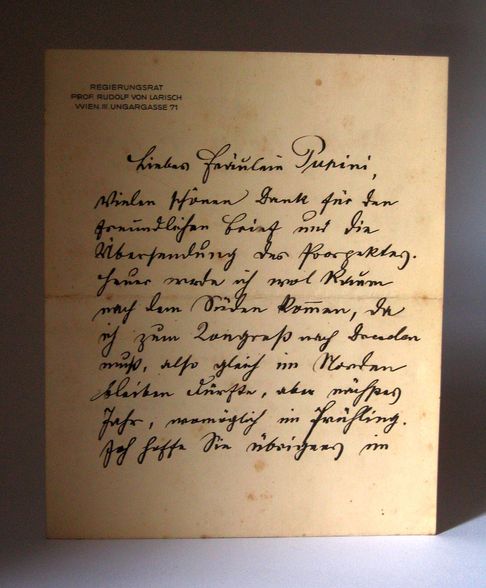 REGIERUNGSRAT
PROF. RUDOLF VON LARISCH
WIEN, III. UNGARGASSE 71
Liebes Fräulein Pupini,
Vielen schönen Dank für den
freundlichen Brief und die
Übersendung des Prospektes.
Heuer werde ich wol kaum
nach dem Süden kommen, da
ich zum Kongreß nach Dresden
muß, also gleich im Norden
bleiben dürfte, aber nächstes
Jahr, womöglich im Frühling.
Ich hoffe Sie übrigens im